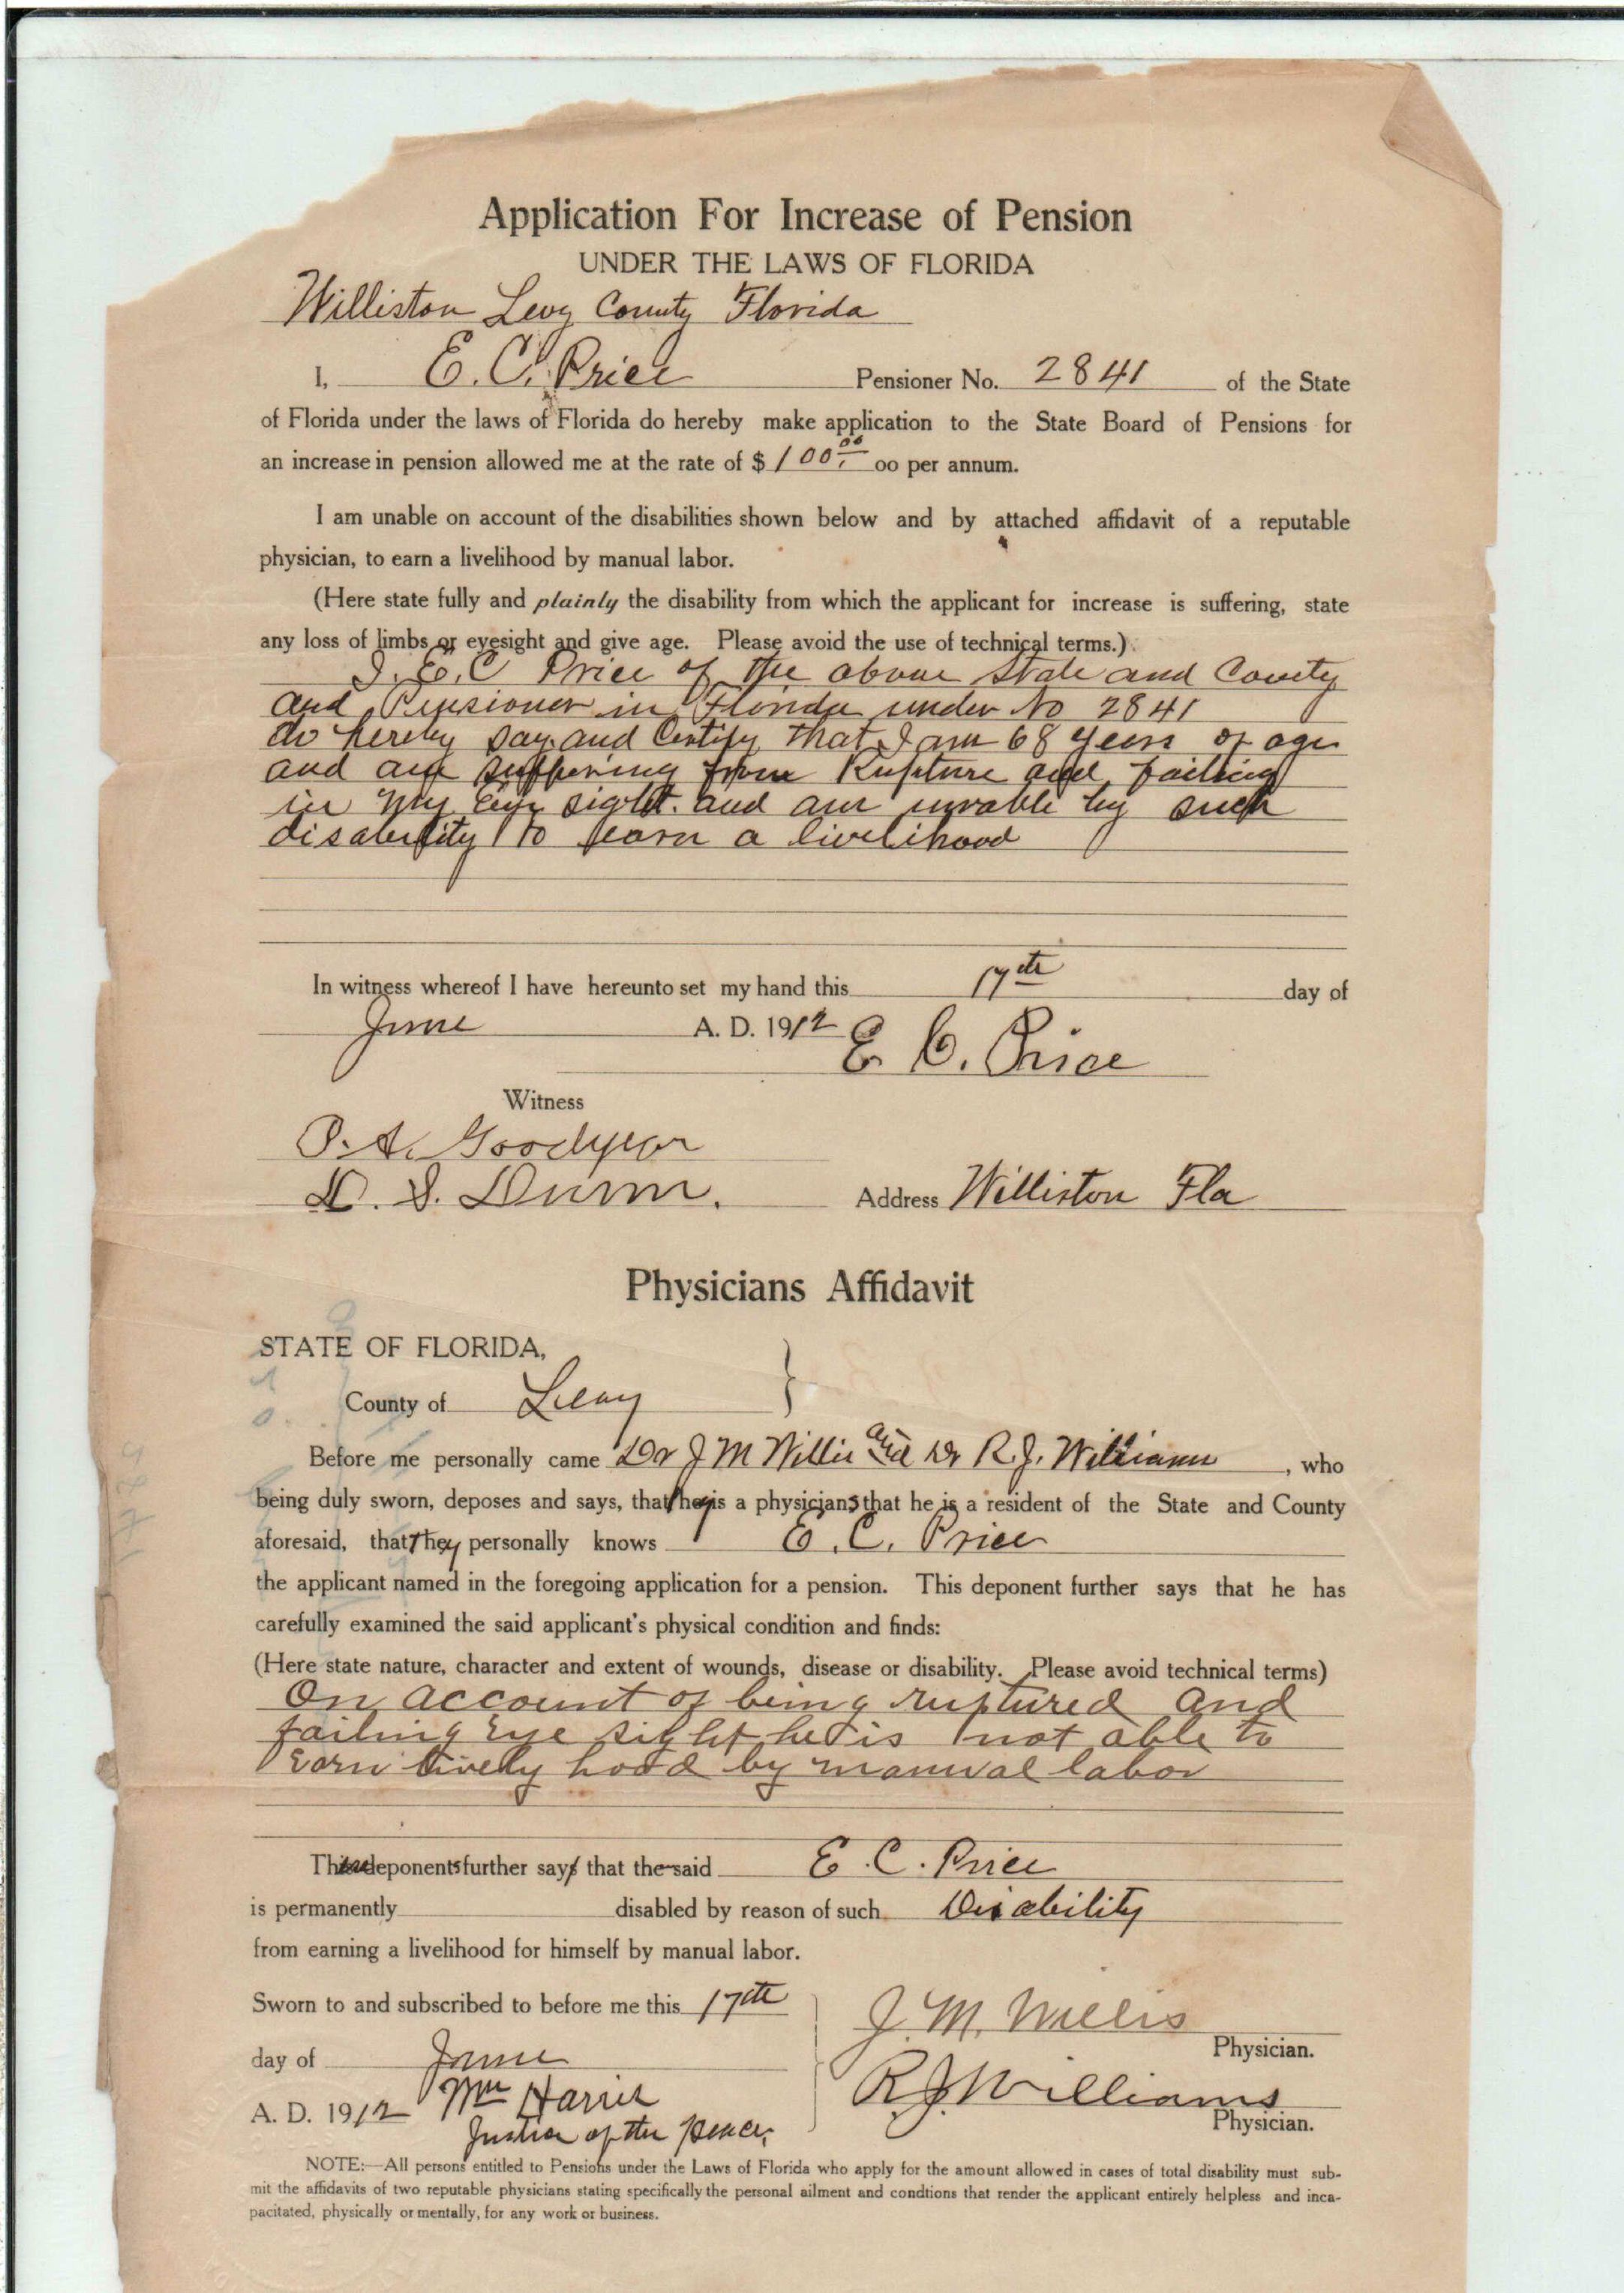 Application For Increase of Pension
UNDER THE LAWS OF FLORIDA
Williston Levy County Florida
I, E. C. Price Pensioner No. 2841 of the State
of Florida under the laws of Florida do hereby make application to the State Board of Pensions for
an increase in pension allowed me at the rate of $ 100.00 oo per annum.
I am unable on account of the disabilities shown below and by attached affidavit of a reputable
physician, to earn a livelihood by manual labor.
(Here state fully and plainly the disability from which the applicant for increase is suffering, state
any loss of limbs or eyesight and give age. Please avoid the use of technical terms.)
I. E. C Price of the above State and County
and Pensioner in Florida under No 2841
do hereby say and Certify that I am 68 years of age
and am suffering from Rupture and failing
in my Eye sight. and am unable by such
disability to earn a livelihood
In witness whereof I have hereunto set my hand this 17th day of
June A. D. 1912 E C. Price
Witness
P. A. Goodyear
D. S. Dunn. Address Williston Fla
Physicians Affidavit
STATE OF FLORIDA,
County of Levy }
Before me personally came Dr J M Willis and Dr R. J. Williams, who
being duly sworn, deposes and says, that they is a physicians that he is a resident of the State and County
aforesaid, that They personally knows E. C. Price
the applicant named in the foregoing application for a pension. This deponent further says that he has
carefully examined the said applicant's physical condition and finds:
(Here state nature, character and extent of wounds, disease or disability. Please avoid technical terms)
On account of being ruptured and
failing Eye sight he is not able to
Earn lively hood by manual labor
These deponents further say that the said E. C. Price
is permanently disabled by reason of such Disability
from earning a livelihood for himself by manual labor.
Sworn to and subscribed to before me this 17th
J. M. Willis
Physician.
day of June
R J Williams
Physician.
A. D. 1912 Wm Harris
Justice of the Peace.
NOTE:—All persons entitled to Pensions under the Laws of Florida who apply for the amount allowed in cases of total disability must sub-
mit the affidavits of two reputable physicians stating specifically the personal ailment and condtions that render the applicant entirely helpless and inca-
pacitated, physically or mentally, for any work or business.